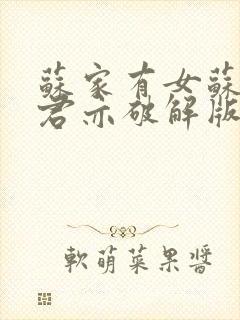 蘇家有女蘇
君亦破解版
軟萌菜果醬